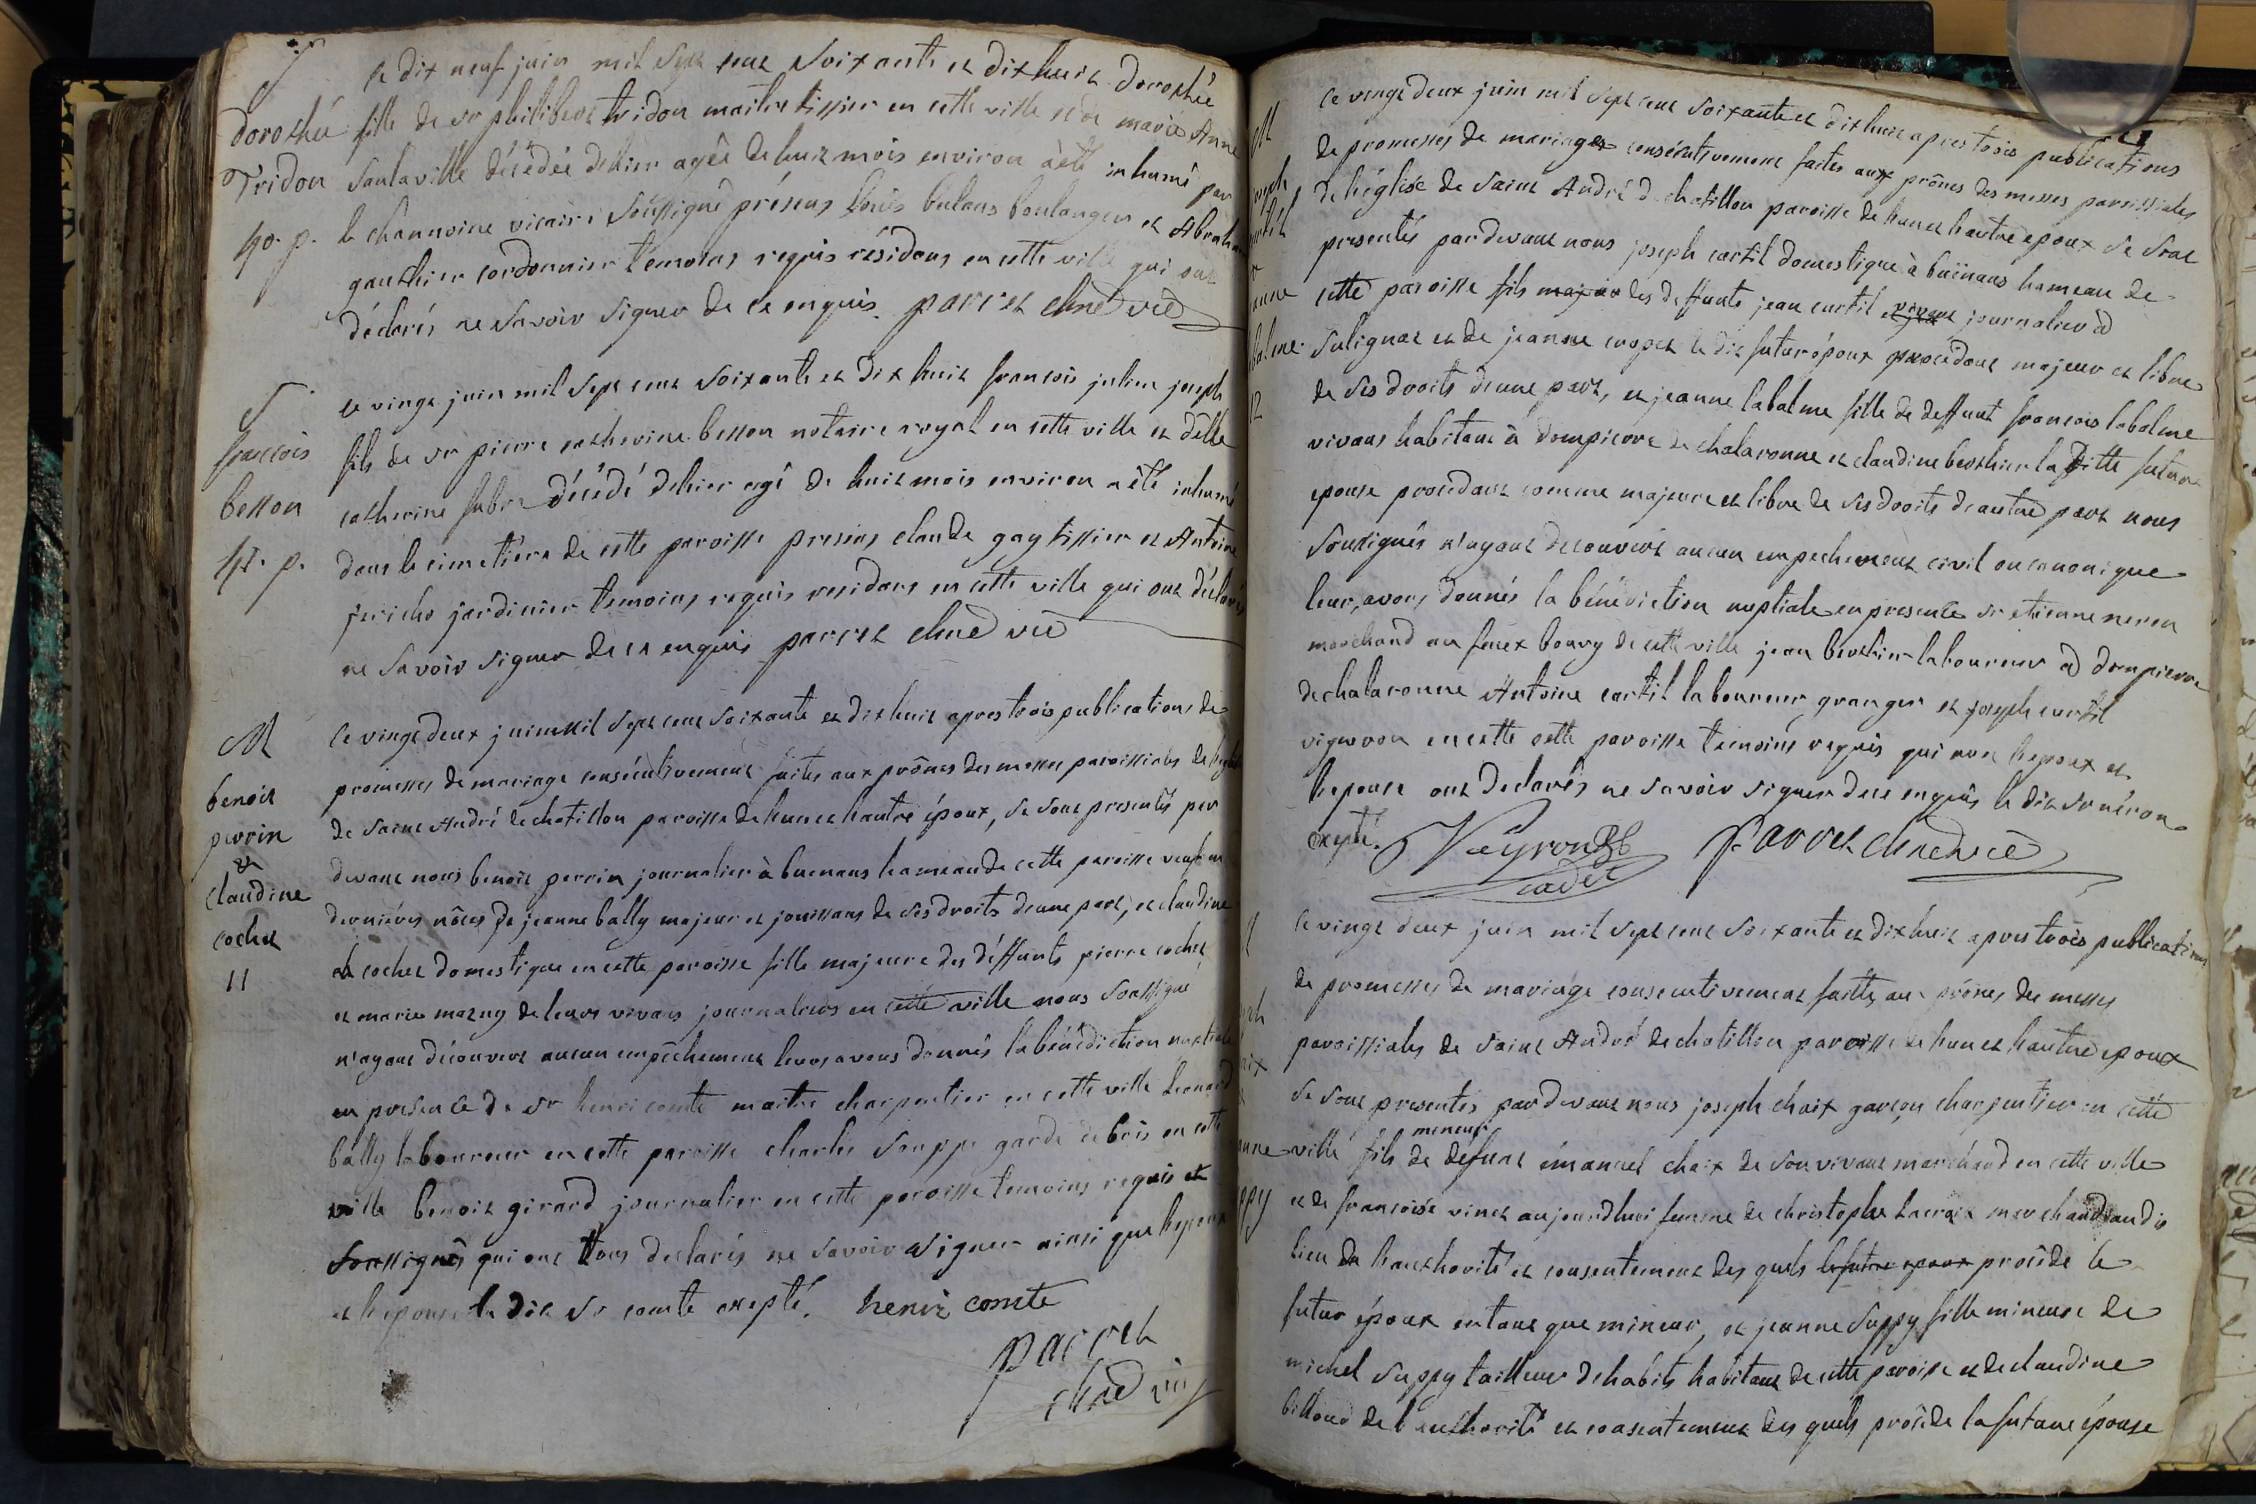 S
Dorothée
Tridon
40. p.
Le dix neuf juin mil sept cent soixante et dix huit Dorothée
fille de sr philibert tridon maitre tissier en cette ville et de marie Anne
Saulaville décédée dehier agée de huit mois environ à été inhumé par
le channoine vicaire soussigné présens louis bulans boulanger et Abraham
gauthier cordonnier témoins requis résidans en cette ville qui ont
déclarés ne savoir signer de ce enquis. parret chne vic
S
francois
besson
41. p.
Le vingt juin mil sept cent soixante et dix huit francois julien joseph
fils de sr pierre catherine besson notaire royal en cette ville et delle
catherine fabre décédé dehier agé de huit mois environ a été inhumé
dans le cimetière de cette paroisse presens claude gay tissier et Antoine
jericho jardinier temoins requis residans en cette ville qui ont déclarés
ne savoir signer de ce enquis parret chne vic
M
benoit
perrin
et
claudine
cochet
11
Ce vingt deux juin mil sept cent soixante et dix huit apres trois publications de
promesses de mariage consécutivement faites aux prônes des messes paroissiales de
de saint André de chatillon paroisse de hun et hautre époux, se sont presentés par
devant nous benoit perrin journalier à buenans hameau de cette paroisse veuf en
dernières nôces de jeanne bally majeur et jouissans de ses droits d'une part, et claudine
cochet domestique en cette paroisse fille majeure des déffunts pierre cochet
et marie mazuy de leurs vivans journaliers en cette ville nous soussigné
n'ayant découvert aucun empêchement leurs avons donnés la bénédiction nuptiale
en presence de sr henri comte maitre charpentier en cette ville Leonard
bally laboureur en cette paroisse charles souppe garde de bois en cette
ville benoit girard journalier en cette paroisse temoins requis et
soussignés qui ont tous declarés ne savoir signer ainsi que l'epoux
et l'epouse le dit sr comte excepté. henri comte
parret
chne vic
Ce vingt deux juin mil sept cent soixante et dix huit apres trois publications
de promesses de mariages consécutivement faites aux prônes des messes paroissiales
de l'église de saint André de chatillon paroisse de hun et hautre epoux se sont
presentés pardevant nous joseph curtil domestique à buënans hameau de
cette paroisse fils majeur des deffunts jean curtil vivant journalier à
Sulignat et de jeanne le dit futur époux procedant majeur et libre
de ses droits d'une part, et jeanne labalme fille de deffunt francois labalme
vivans habitant à dompierre de chalaronne et claudine berthier la ditte future
epouse procedant comme majeure et libre de ses droits d'autre part nous
soussignés n'ayant decouvert aucun empechement civil ou canonique
leur, avons donnés la bénédiction nuptiale en presence sr etienne neron
marchand au faux bourg de cette ville jean berthier laboureur à dompierre
de chalaronne Antoine curtil laboureur granger et joseph curtil
vigneron en cette cette paroisse temoins requis qui avec l'epoux et
l'epouse ont declarés ne savoir signer de ce enquis le dit sr néron
excepté. Neyron
cadet parret chne vic
Ce vingt deux juin mil sept cent soixante et dix huit apres trois publications
de promesses de mariage consecutivement faittes aux prônes des messes
paroissiales de saint André de chatillon paroisse de hun et hautre epoux
se sont presentés pardevant nous joseph chaix garçon charpentier en cette
mineur
ville fils de défunt émanuel chaix de son vivant marchand en cette ville
et de francoise vinet aujourdhui femme de christophe Lacroix marchand audit
lieu de l'authorité et consentement des quels le futur epoux procéde le
futur époux entant que mineur, et jeanne suppy fille mineure de
michel suppy tailleur d'habits habitant de cette paroisse et de claudine
billoud de l'authorité et consentement des quels procéde la future épouse